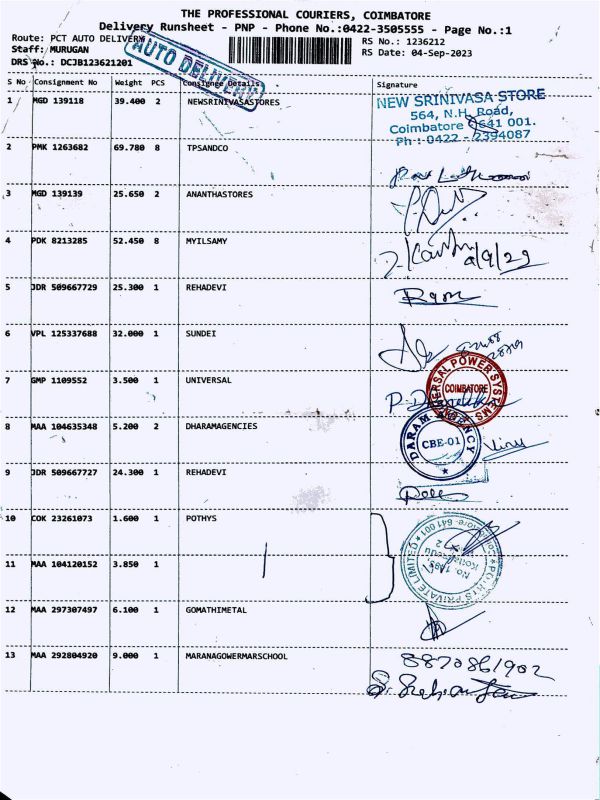 THE PROFESSIONAL COURIERS, COIMBATORE
Delivery Runsheet - PNP - Phone No.:0422-3505555 - Page No.:1
Route: PCT AUTO DELIVERY
RS No.: 1236212
Staff: MURUGAN
RS Date: 04-Sep-2023
DRS No.: DCJB123621201
AUTO DELIVERY
S No Consignment No Weight PCS Consignee Details Signature
1 MGD 139118 39.400 2 NEWSRINIVASASTORES
NEW SRINIVASA STORE
564, N.H. Road,
Coimbatore 641 001.
Ph : 0422 - 2394087
2 PMK 1263682 69.780 8 TPSANDCO
3 MGD 139139 25.650 2 ANANTHASTORES
4 PDK 8213285 52.450 8 MYILSAMY
5 JDR 509667729 25.300 1 REHADEVI
6 VPL 125337688 32.000 1 SUNDEI
7 GMP 1109552 3.500 1 UNIVERSAL
UNIVERSAL POWER SYSTEMS
COIMBATORE
8 MAA 104635348 5.200 2 DHARAMAGENCIES
DARAM AGENCY
CBE-01
9 JDR 509667727 24.300 1 REHADEVI
10 COK 23261073 1.600 1 POTHYS
11 MAA 104120152 3.850 1
POTHYS PRIVATE LIMITED
641 001
12 MAA 297307497 6.100 1 GOMATHIMETAL
13 MAA 292804920 9.000 1 MARANAGOWERMARSCHOOL
8870861902